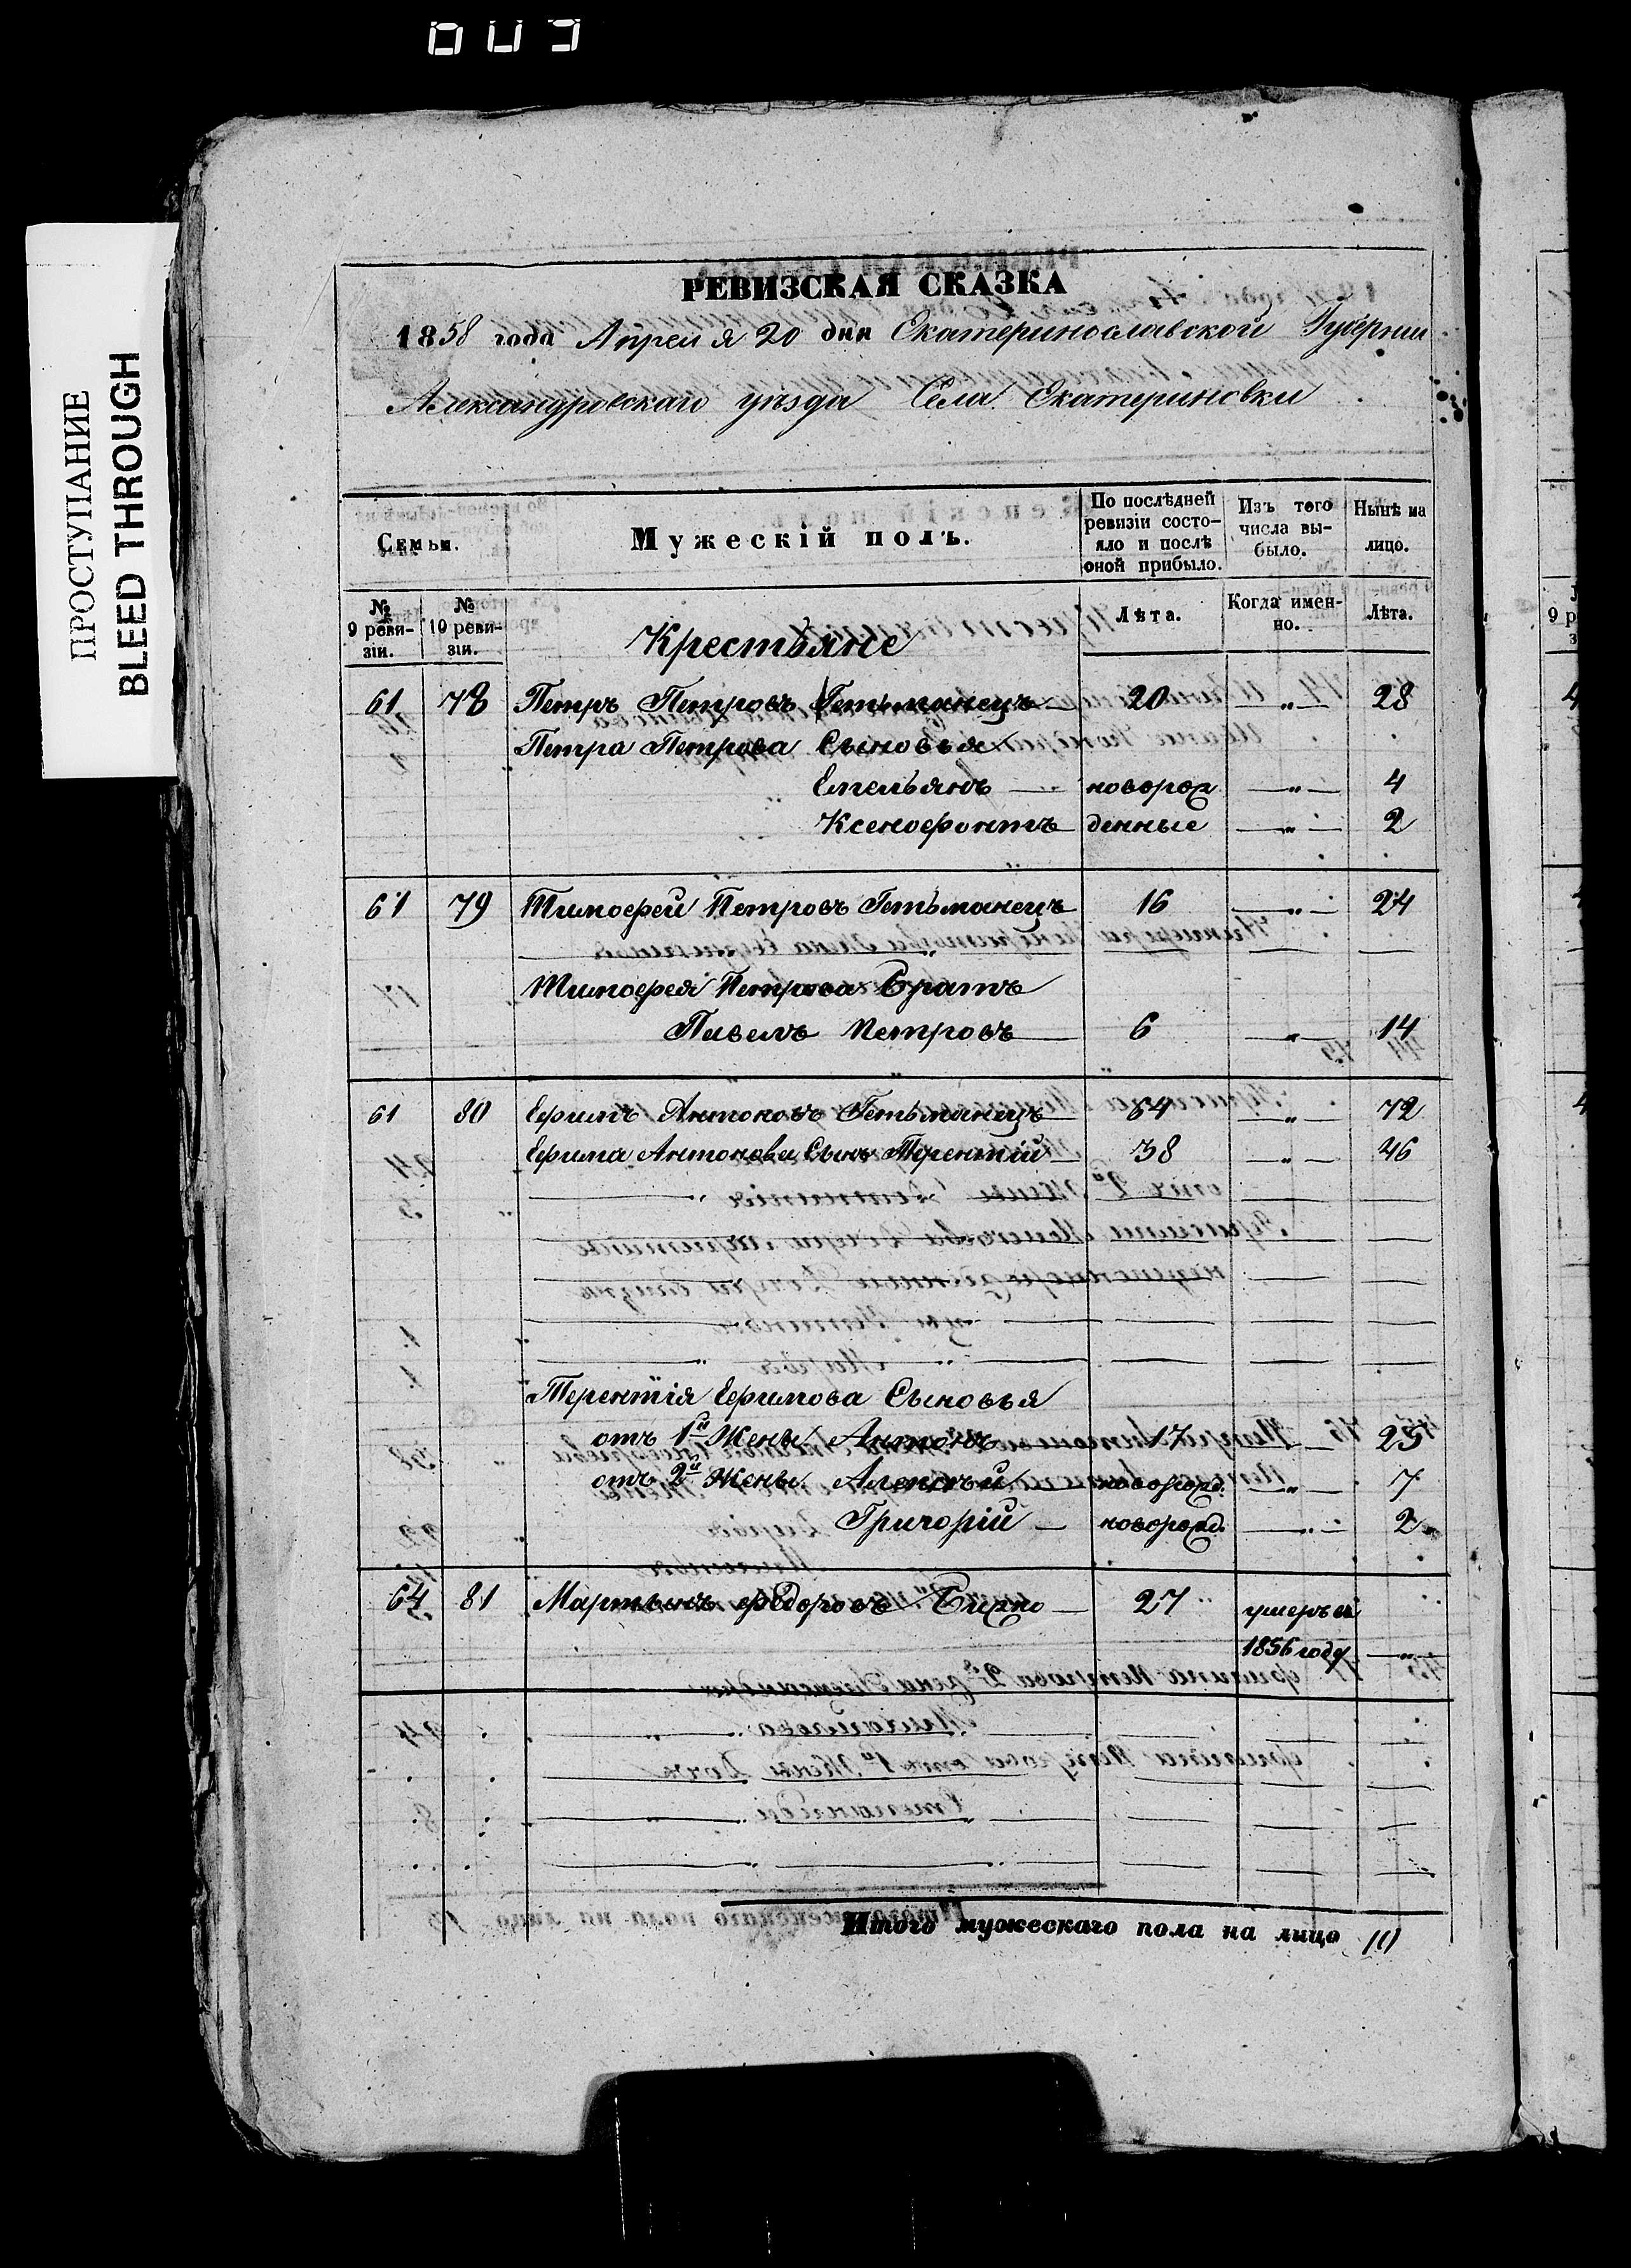 ПРОСТУПАНИЕ
BLEED THROUGH
РЕВИЗСКАЯ СКАЗКА
1858 года Апреля 20 дня Екатеринославской Губерніи
Александровскаго уѣзда Села Екатериновки
Семьи.
Мужескій полъ.
По послѣдней ревизіи состояло и послѣ оной прибыло.
Изъ того числа выбыло.
Нынѣ на лицо.
№ 9 ревизіи.
№ 10 ревизіи.
Крестьяне
Лѣта.
Когда именно.
Лѣта.
61 78 Петръ Петровъ Гетьманецъ 20 — „ — 28
Петра Петрова Сыновья
Емельянъ — новорож — „ — 4
Ксенофонтъ денные — „ — 2
61 79 Тимофей Петровъ Гетьманецъ 16 — „ — 24
Тимофея Петрова Братъ
Павелъ Петровъ 6 — „ — 14
61 80 Ефимъ Антоновъ Гетьманецъ 64 — „ — 72
Ефима Антонова Сынъ Терентій 38 — „ — 46
Терентія Ефимова Сыновья
отъ 1й Жены Антонъ 17 — „ — 25
отъ 2й Жены Алексѣй новорожд. — „ — 7
Григорій — новорожд. — „ — 2
64 81 Мартынъ Федоровъ 27 умеръ въ
1856 году — „ —
Итого мужескаго пола на лицо 10